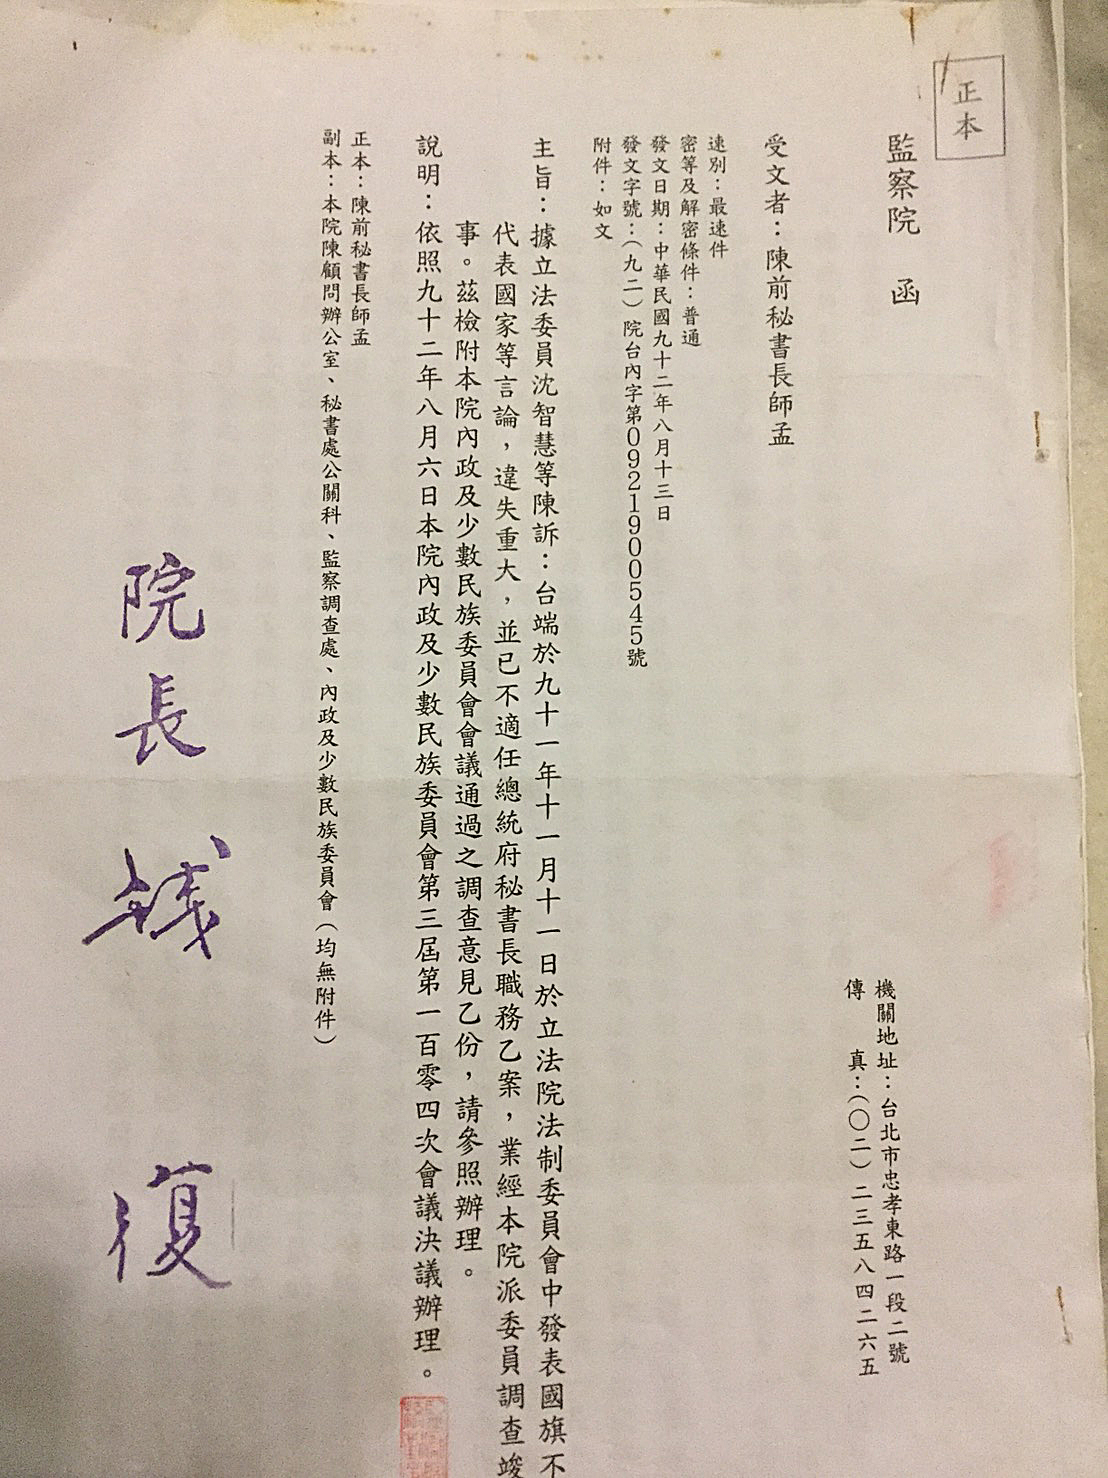 正本
監察院　函
機關地址：台北市忠孝東路一段二號
傳　　真：（〇二）二三五八四二六五
受文者：陳前秘書長師孟
速別：最速件
密等及解密條件：普通
發文日期：中華民國九十二年八月十三日
發文字號：（九二）院台內字第0921900545號
附件：如文
主旨：據立法委員沈智慧等陳訴：台端於九十一年十一月十一日於立法院法制委員會中發表國旗不
代表國家等言論，違失重大，並已不適任總統府秘書長職務乙案，業經本院派委員調查竣
事。茲檢附本院內政及少數民族委員會會議通過之調查意見乙份，請參照辦理。
說明：依照九十二年八月六日本院內政及少數民族委員會第三屆第一百零四次會議決議辦理。
正本：陳前秘書長師孟
副本：本院陳顧問辦公室、秘書處公關科、監察調查處、內政及少數民族委員會（均無附件）
院長 錢復